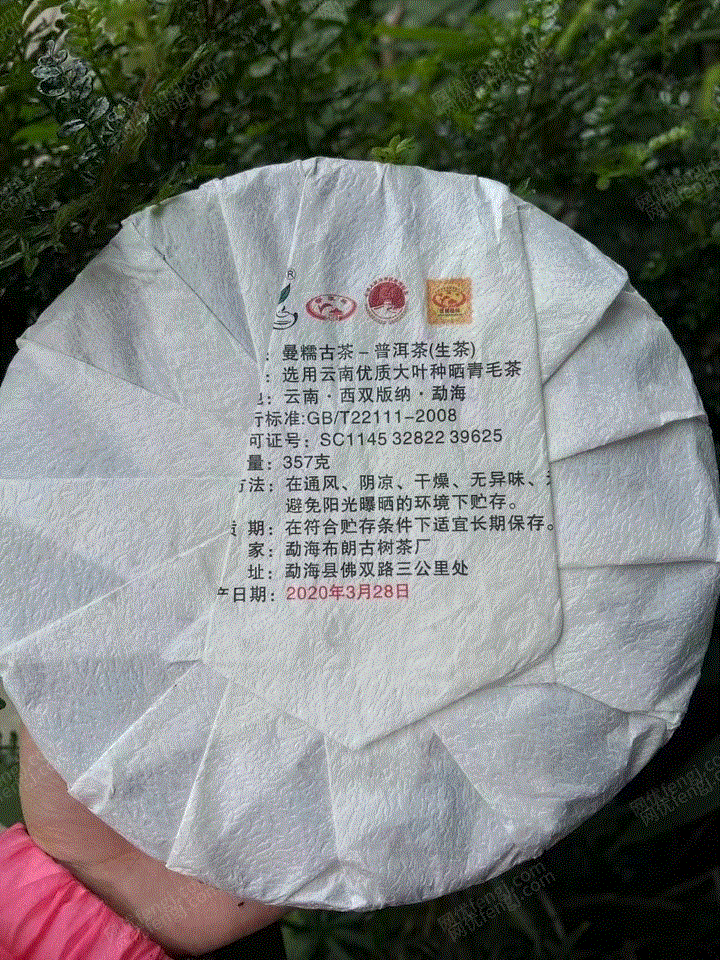 ®
：曼糯古茶－普洱茶(生茶)
：选用云南优质大叶种晒青毛茶
：云南·西双版纳·勐海
行标准:GB/T22111-2008
可证号：SC1145 32822 39625
量：357克
方法：在通风、阴凉、干燥、无异味、
避免阳光曝晒的环境下贮存。
质 期：在符合贮存条件下适宜长期保存。
家：勐海布朗古树茶厂
址：勐海县佛双路三公里处
产日期：2020年3月28日
网优fengj.com
网优fengj.com
网优fengj.com
网优fengj.com
网优fengj.com